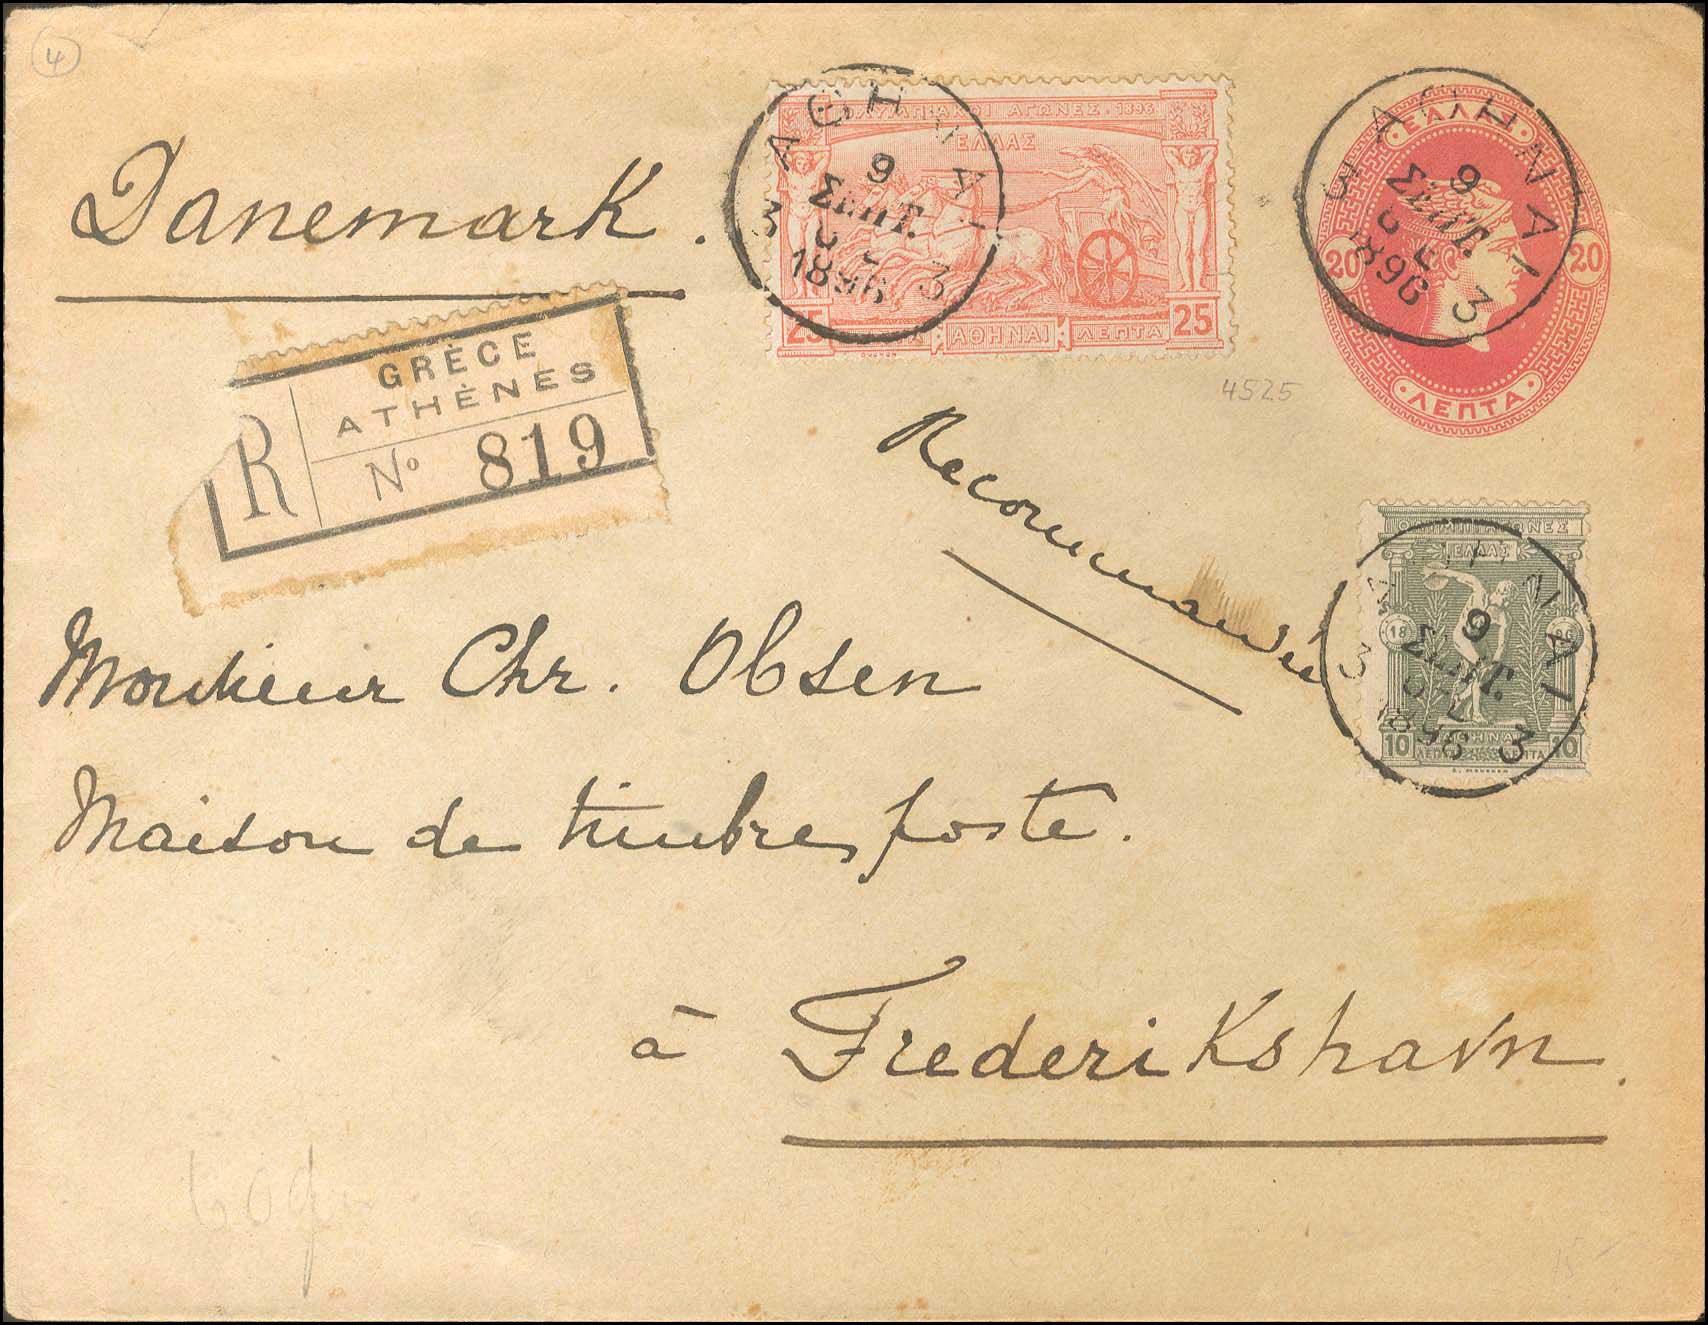 4
Danemark.
ΟΛΥΜΠΙΑΚΟΙ ΑΓΩΝΕΣ. 1896
ΕΛΛΑΣ
25 ΑΘΗΝΑΙ ΛΕΠΤΑ 25
ΑΘΗΝΑΙ
9
ΣΕΠΤ.
1896
3 3
ΕΛΛΗΝ
20 20
ΛΕΠΤΑ
ΑΘΗΝΑΙ
9
ΣΕΠΤ.
1896
3 3
GRÈCE
ATHÈNES
R Nº 819
4525
Recommandée
ΟΛΥΜΠ ΑΓΩΝΕΣ
ΕΛΛΑΣ
18 96
ΑΘΗΝΑΙ
10 ΛΕΠΤΑ ΛΕΠΤΑ 10
ΑΘΗΝΑΙ
9
ΣΕΠΤ.
1896
3 3
Monsieur Chr. Olsen
Maison de timbres poste.
à Frederikshavn.
15